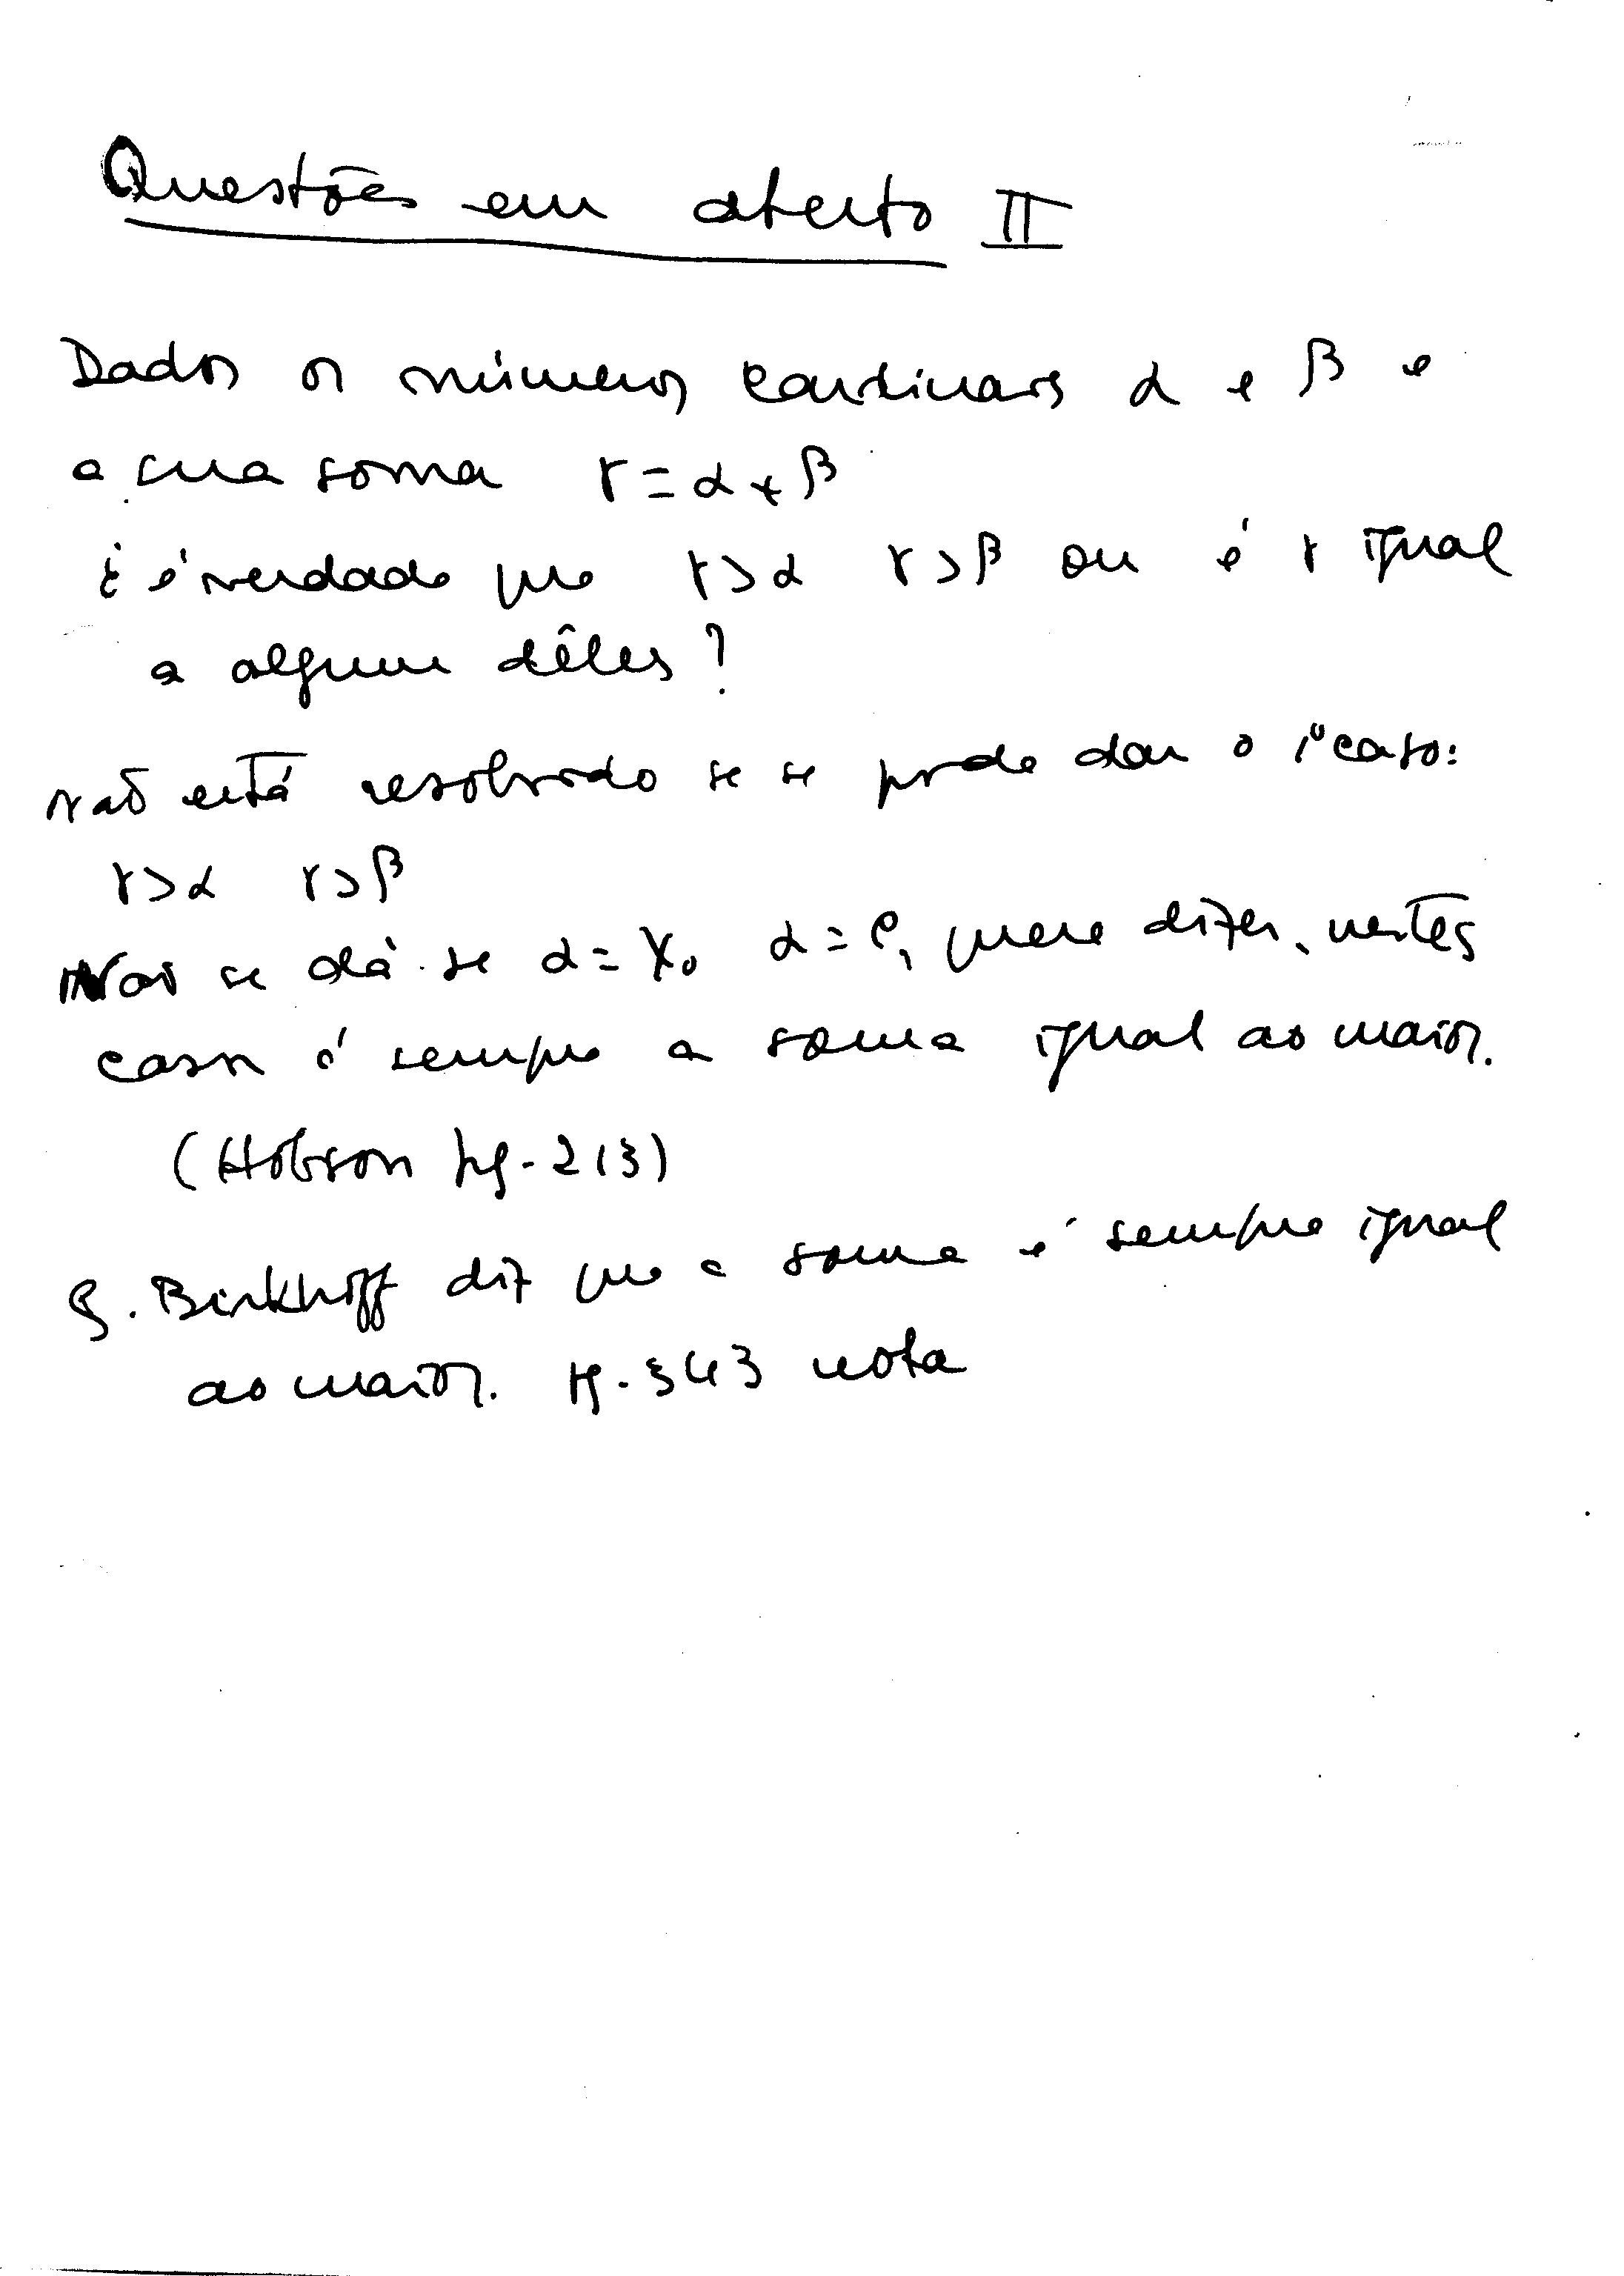 Questões em aberto II
Dados os números cardinais α e β e
a sua soma γ = α + β
¿ é verdade que γ > α γ > β ou é γ igual
a algum dêles?
não está resolvido se se pode dar o 1º caso:
γ > α γ > β
Não se dá se α = ℵ₀ α = c, quere dizer, nestes
casos é sempre a soma igual ao maior.
(Hobson pg. 213)
G. Birkhoff diz que a soma é sempre igual
ao maior. pg. 343 nota